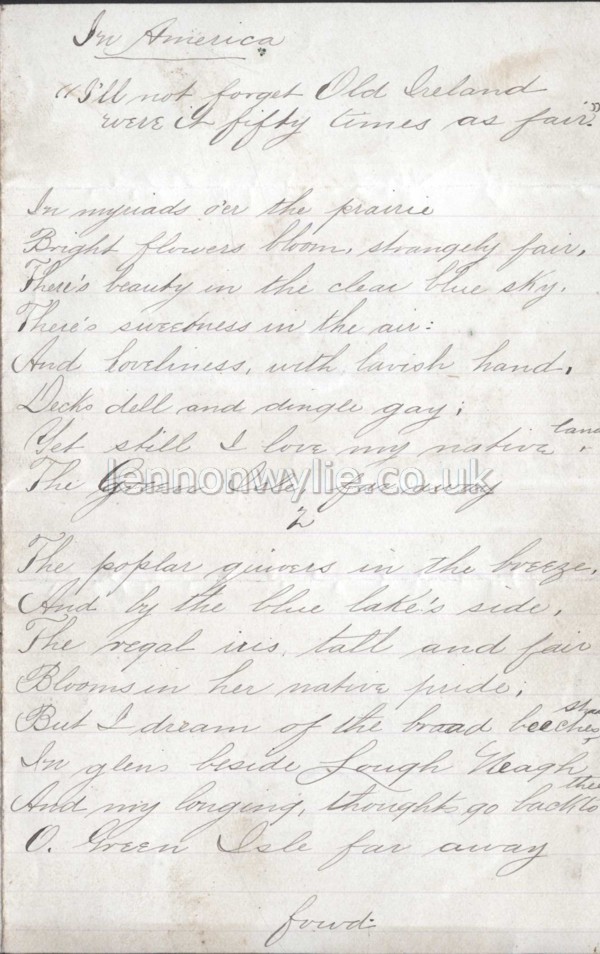 In America
"I'll not forget Old Ireland
were it fifty times as fair."
In myriads o'er the prairie
Bright flowers bloom, strangely fair,
There's beauty in the clear blue sky,
There's sweetness in the air:
And loveliness, with lavish hand,
Decks dell and dingle gay;
Yet still I love my native land,
The Green Isle, far away
lennonwylie.co.uk
2
The poplar quivers in the breeze,
And by the blue lake's side,
The regal iris, tall and fair
Blooms in her native pride;
But I dream of the broad beeches
In glens beside Lough Neagh
And my longing, thoughts go back to thee
O. Green Isle far away
fowd